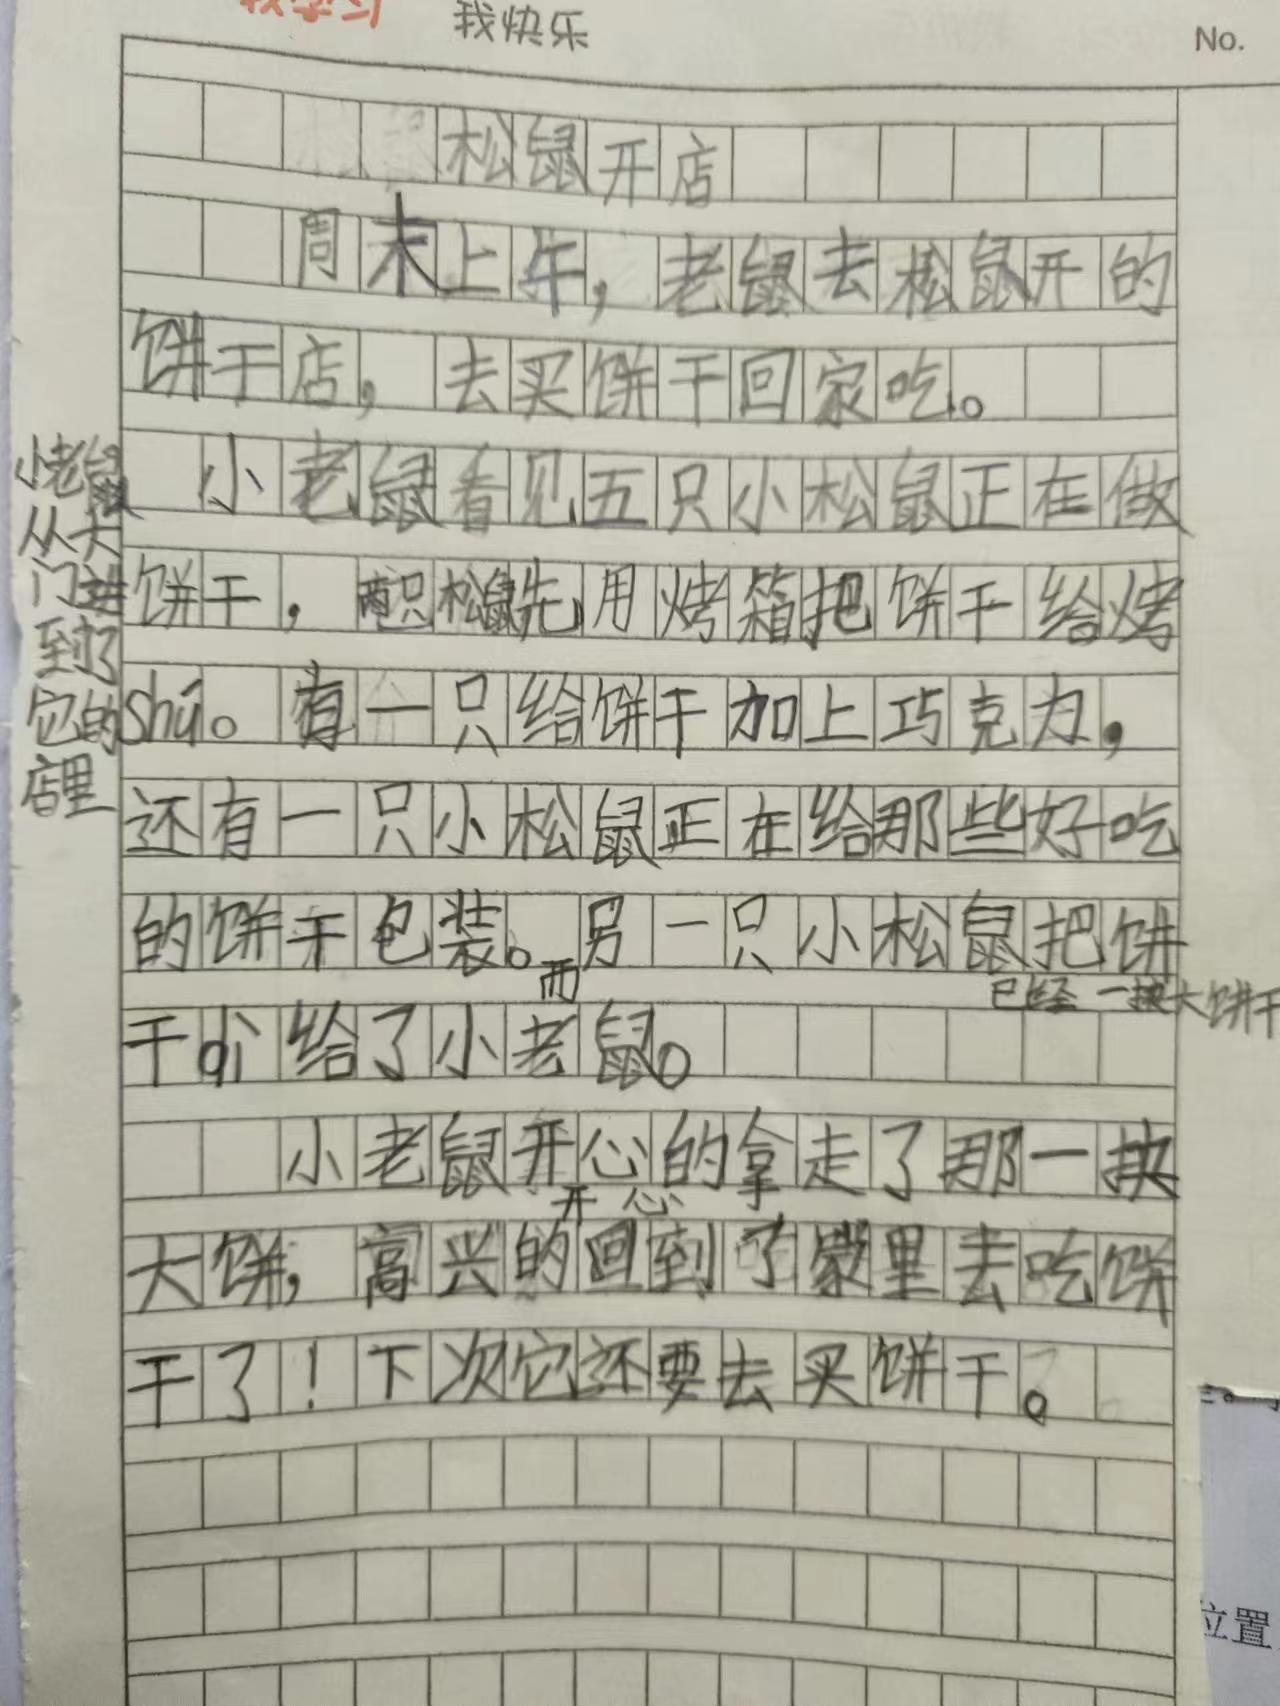 我学习 我快乐
No.
松鼠开店
周末上午，老鼠去松鼠开的
饼干店，去买饼干回家吃。
小老鼠看见五只小松鼠正在做
饼干，两只松鼠先用烤箱把饼干给烤
shú。有一只给饼干加上巧克力，
还有一只小松鼠正在给那些好吃
的饼干包装。另一只小松鼠把饼
而
已经 一块大饼干
干qi给了小老鼠。
小老鼠开心的拿走了那一块
开心
大饼，高兴的回到了家里去吃饼
干了！下次它还要去买饼干。
小老鼠
从大
门进
到了
它的
店里
位置